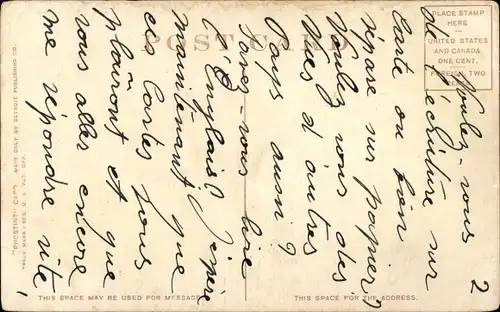 POST CARD
PLACE STAMP
HERE
UNITED STATES
AND CANADA
ONE CENT.
FOREIGN, TWO
"PHOSTINT" CARD MADE ONLY BY DETROIT PUBLISHING CO.
THIS SPACE MAY BE USED FOR MESSAGE
THIS SPACE FOR THE ADDRESS.
2
Voulez-vous
de l'écriture sur
carte ou bien
séparé sur papier?
Voulez vous des
vues d'autres
pays aussi?
Savez-vous lire
l'Anglais?
maintenant? J'espère
ces cartes vous
plairont et que
vous allez encore
me répondre vite!